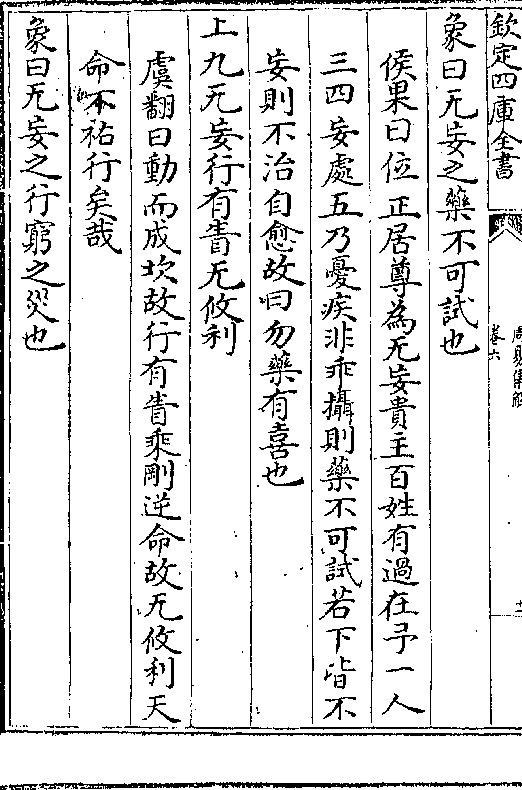 欽定四庫全書
周易集解
卷六
象曰无妄之藥不可試也
侯果曰位正居尊為无妄貴主百姓有過在予一人
三四妄處五乃憂疾非乖攝則藥不可試若下皆不
妄則不治自愈故曰勿藥有喜也
上九无妄行有眚无攸利
虞翻曰動而成坎故行有眚乘剛逆命故无攸利天
命不祐行矣哉
象曰无妄之行窮之災也